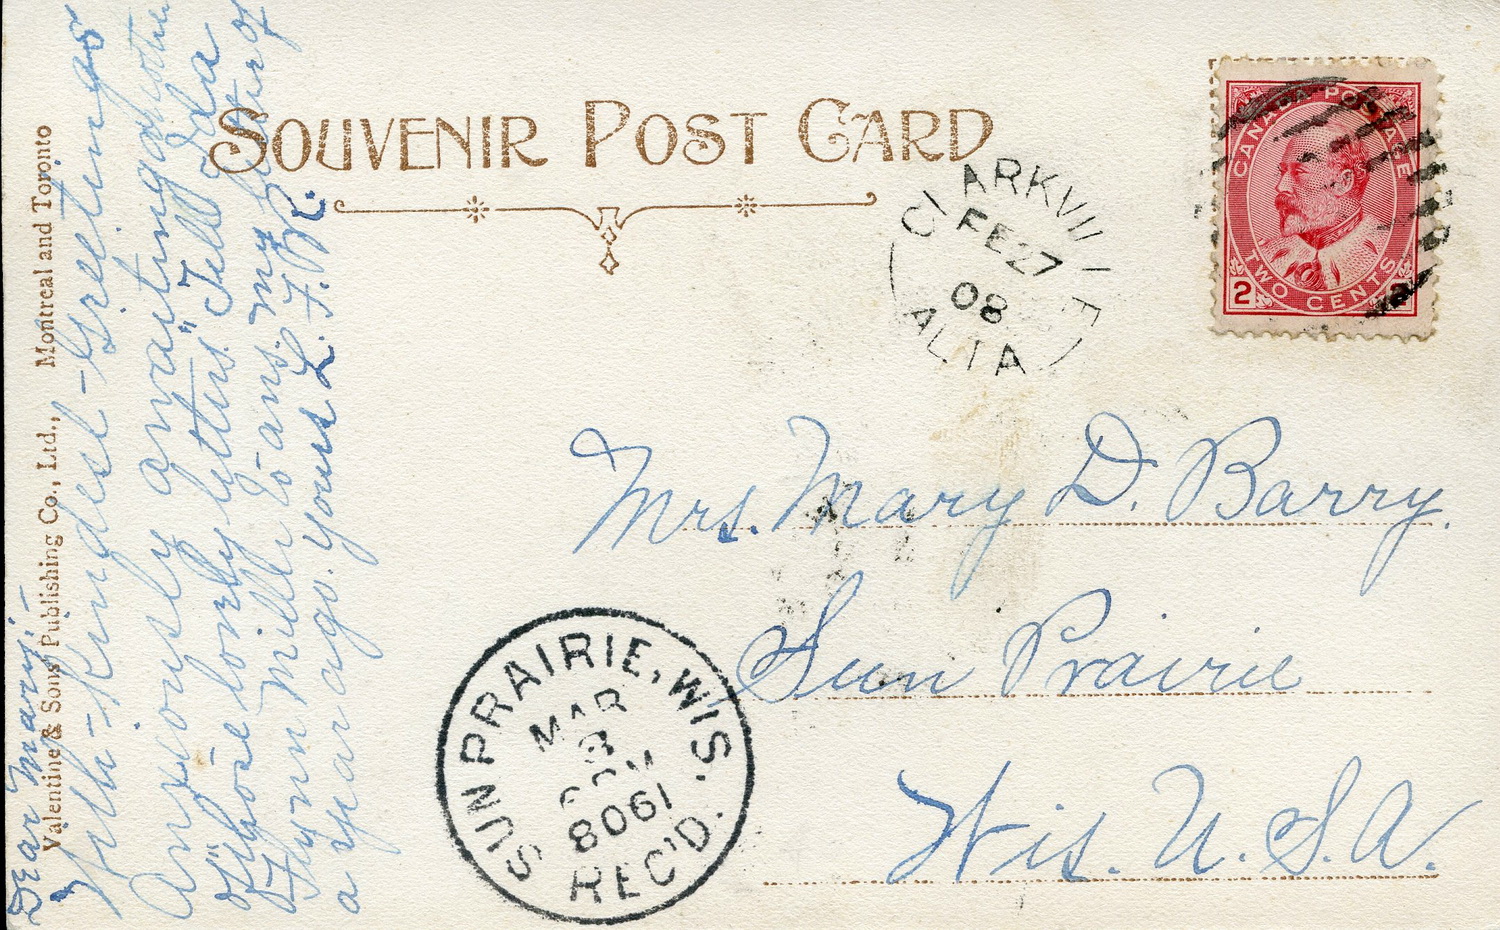 Dear Mary:-
With - Kindest - Greetings
Anxiously awaiting another
of "those lovely letters." Tell Ida
Flynn Millie to ans. my letter of
a year ago. yours L. F. M.
Valentine & Sons Publishing Co., Ltd., Montreal and Toronto
SOUVENIR POST CARD
CLARKVILLE
FE 27
08
ALTA
CANADA POSTAGE
2 2
TWO CENTS
Mrs. Mary D. Barry.
Sun Prairie
Wis. U.S.A.
SUN PRAIRIE, WIS.
MAR
3
1908
REC'D.